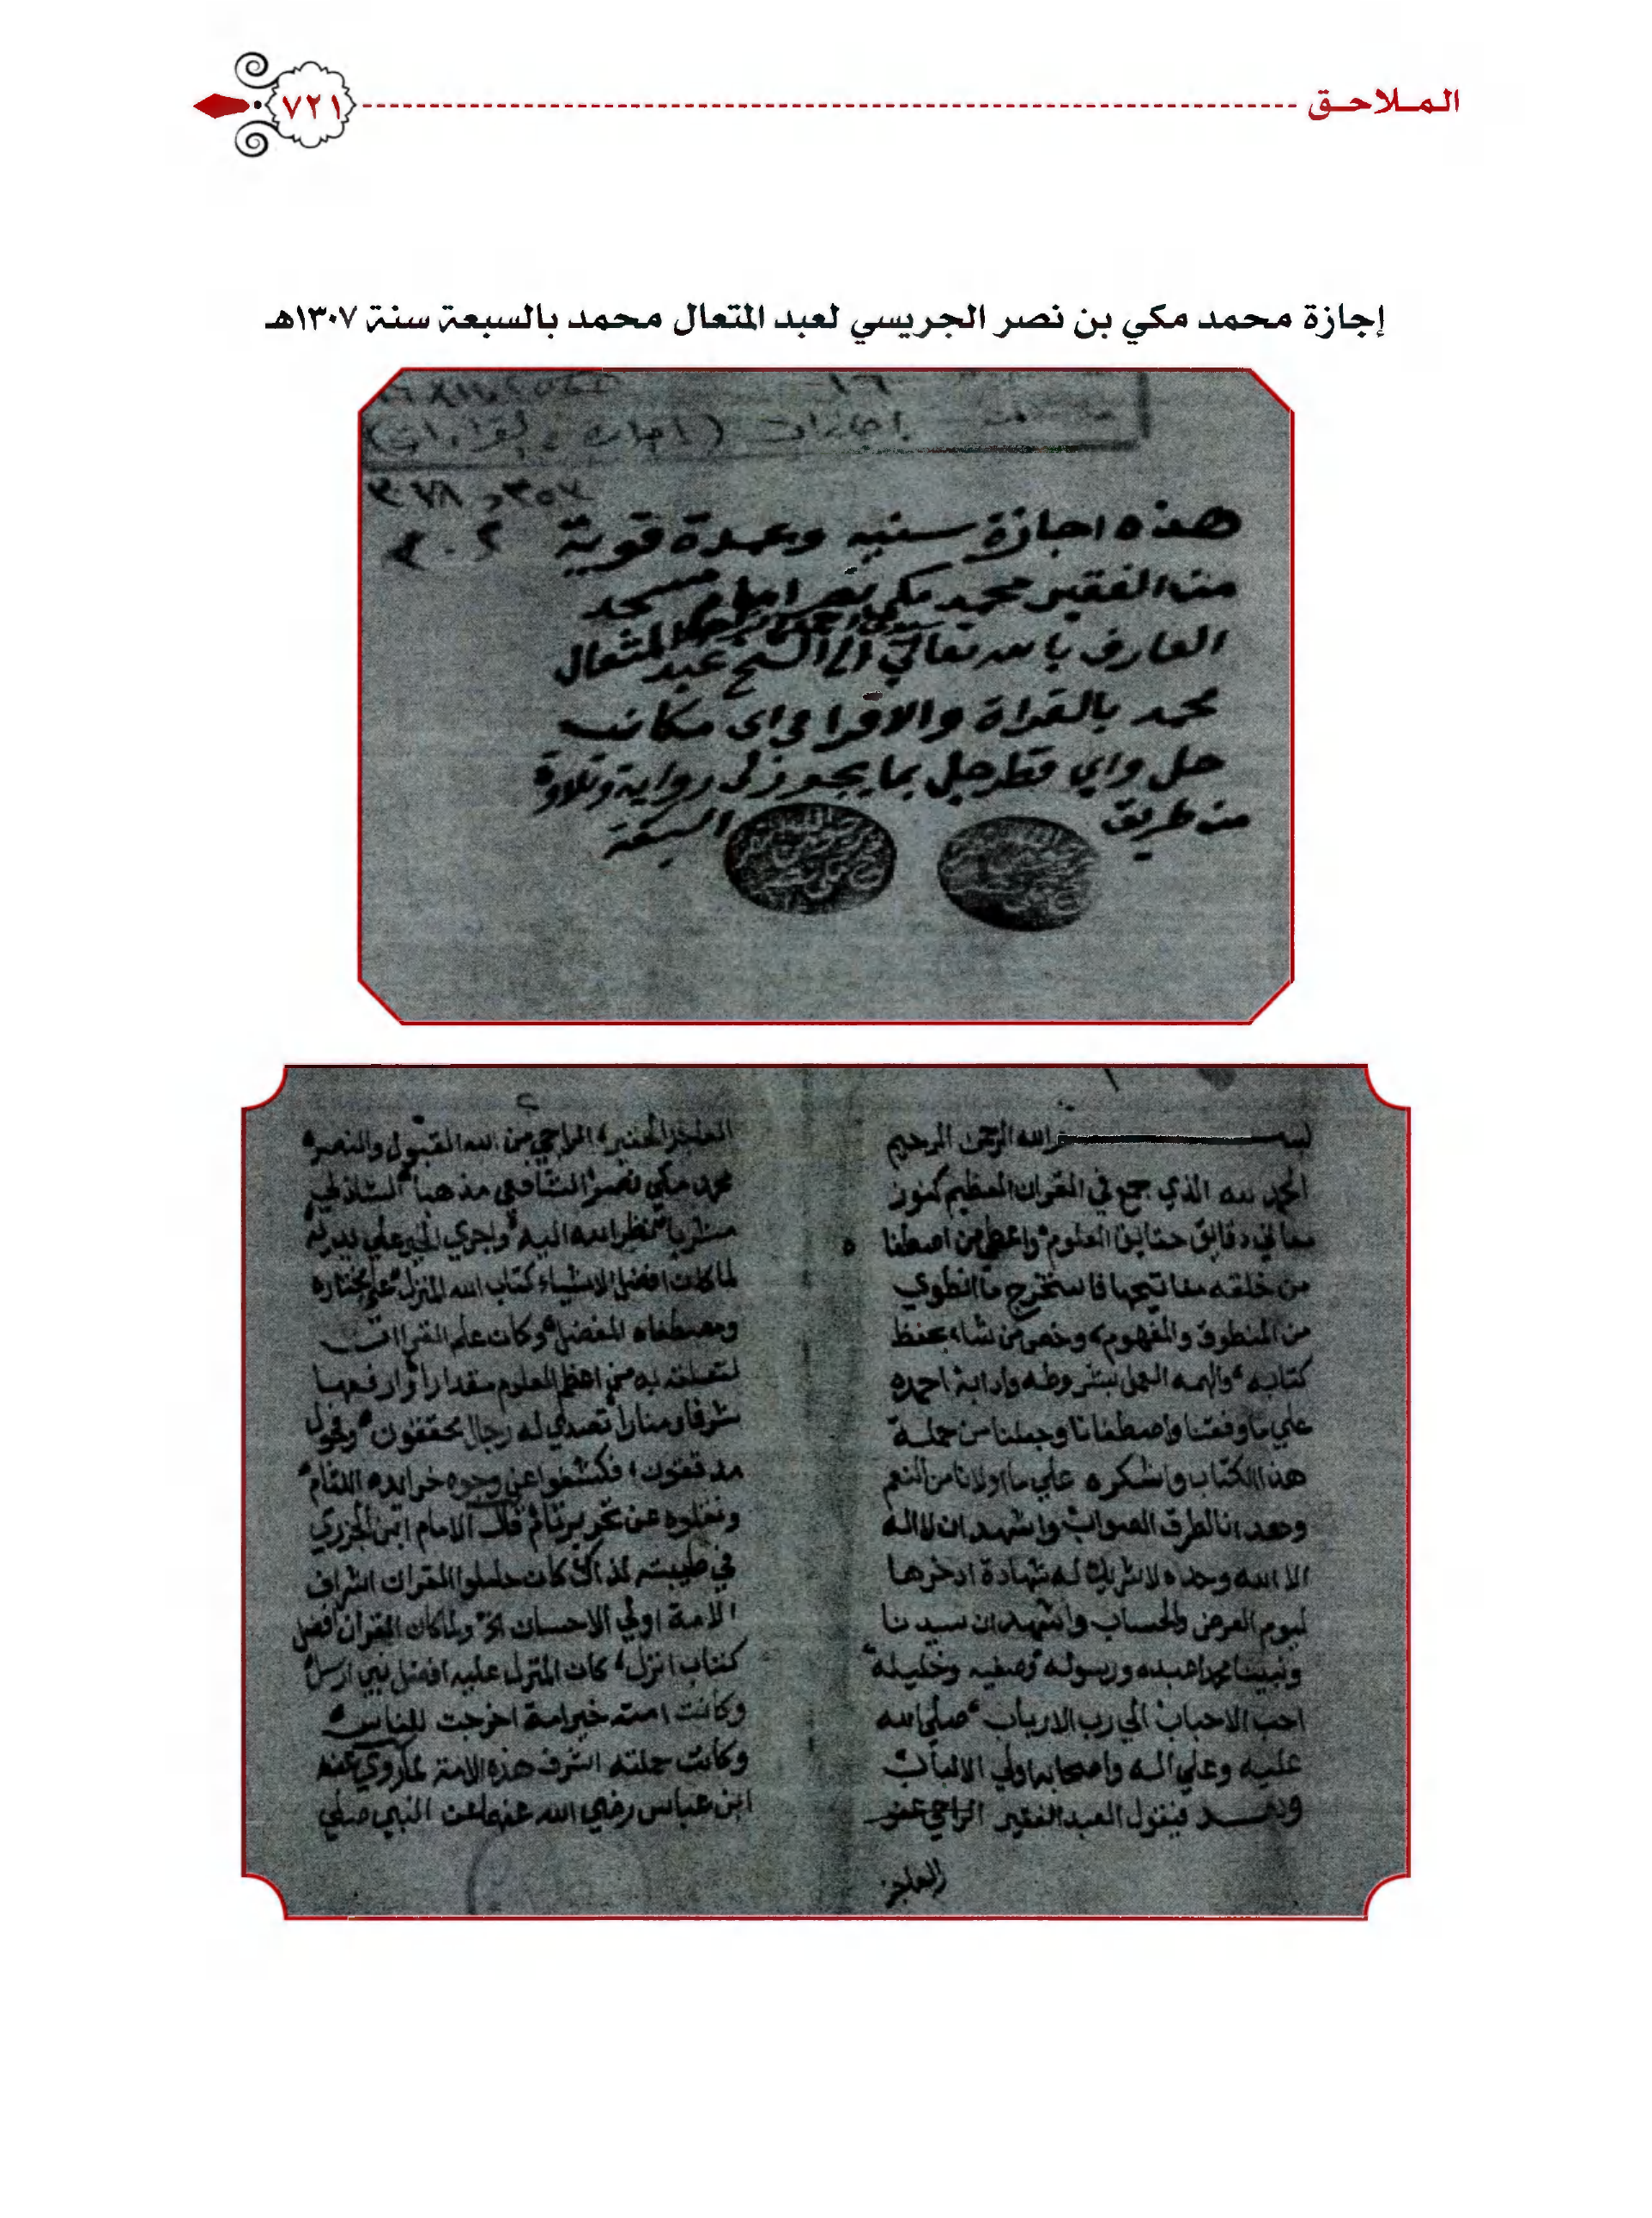 الملاحق
٧٢١
إجازة محمد مكي بن نصر الجريسي لعبد المتعال محمد بالسبعة سنة ١٣٠٧هـ
هذه اجازة سنيه وعمدة قوية
من الفقير محمد مكي نصر امام مسجد
العارف بالله تعالي الي الشيخ عبد المتعال
محمد بالقراة والاقرا في اى مكان
حل واي قطر حل بما يجوز لى رواية وتلاوة
من طريق السبعة
بسم الله الرحمن الرحيم
الحمد لله الذي جمع في القران العظيم كنوز
معاني دقايق حقايق العلوم واعطي من اصطفا
من خلقه مفاتيحها فاستخرج ما انطوي
من المنطوق والمفهوم وخص من شاء بحفظ
كتابه والهمه العمل بشروطه وادابه احمده
علي ما وفقنا واصطفانا وجعلنا من حملة
هذا الكتاب واشكره علي ما اولانا من النعم
وهدانا لطرق الصواب واشهد ان لا اله
الا الله وحده لا شريك له شهادة ادخرها
ليوم العرض والحساب واشهد ان سيدنا
ونبينا محمدا عبده ورسوله وصفيه وخليله
احب الاحباب الي رب الارباب صلي الله
عليه وعلي اله واصحابه اولي الالباب
وبعد فيقول العبد الفقير الراجي
العاجز
العاجز الحقير الراجي من الله القبول والنصر
محمد مكي نصر الشافعي مذهبا الشاذلي
مشربا نظر الله اليه واجري الخير علي يديه
لما كان افضل الاشياء كتاب الله المنزل علي مختاره
ومصطفاه المفضل وكان علم القراات
لتعلقه به من اعظم العلوم مقدارا وارفعها
شرفا ومنارا تصدي له رجال محققون وفحول
مدققون فكشفوا عن وجوه خرايده اللثام
ونقلوه عن تحرير تام قال الامام ابن الجزري
في طيبته لذاك كان حاملوا القران اشراف
الامة اولي الاحسان اه ولما كان القران افضل
كتاب انزل كان المنزل عليه افضل نبي ارسل
وكانت امته خير امة اخرجت للناس
وكانت حملته اشرف هذه الامة لما روي عن
ابن عباس رضي الله عنهما عن النبي صلي